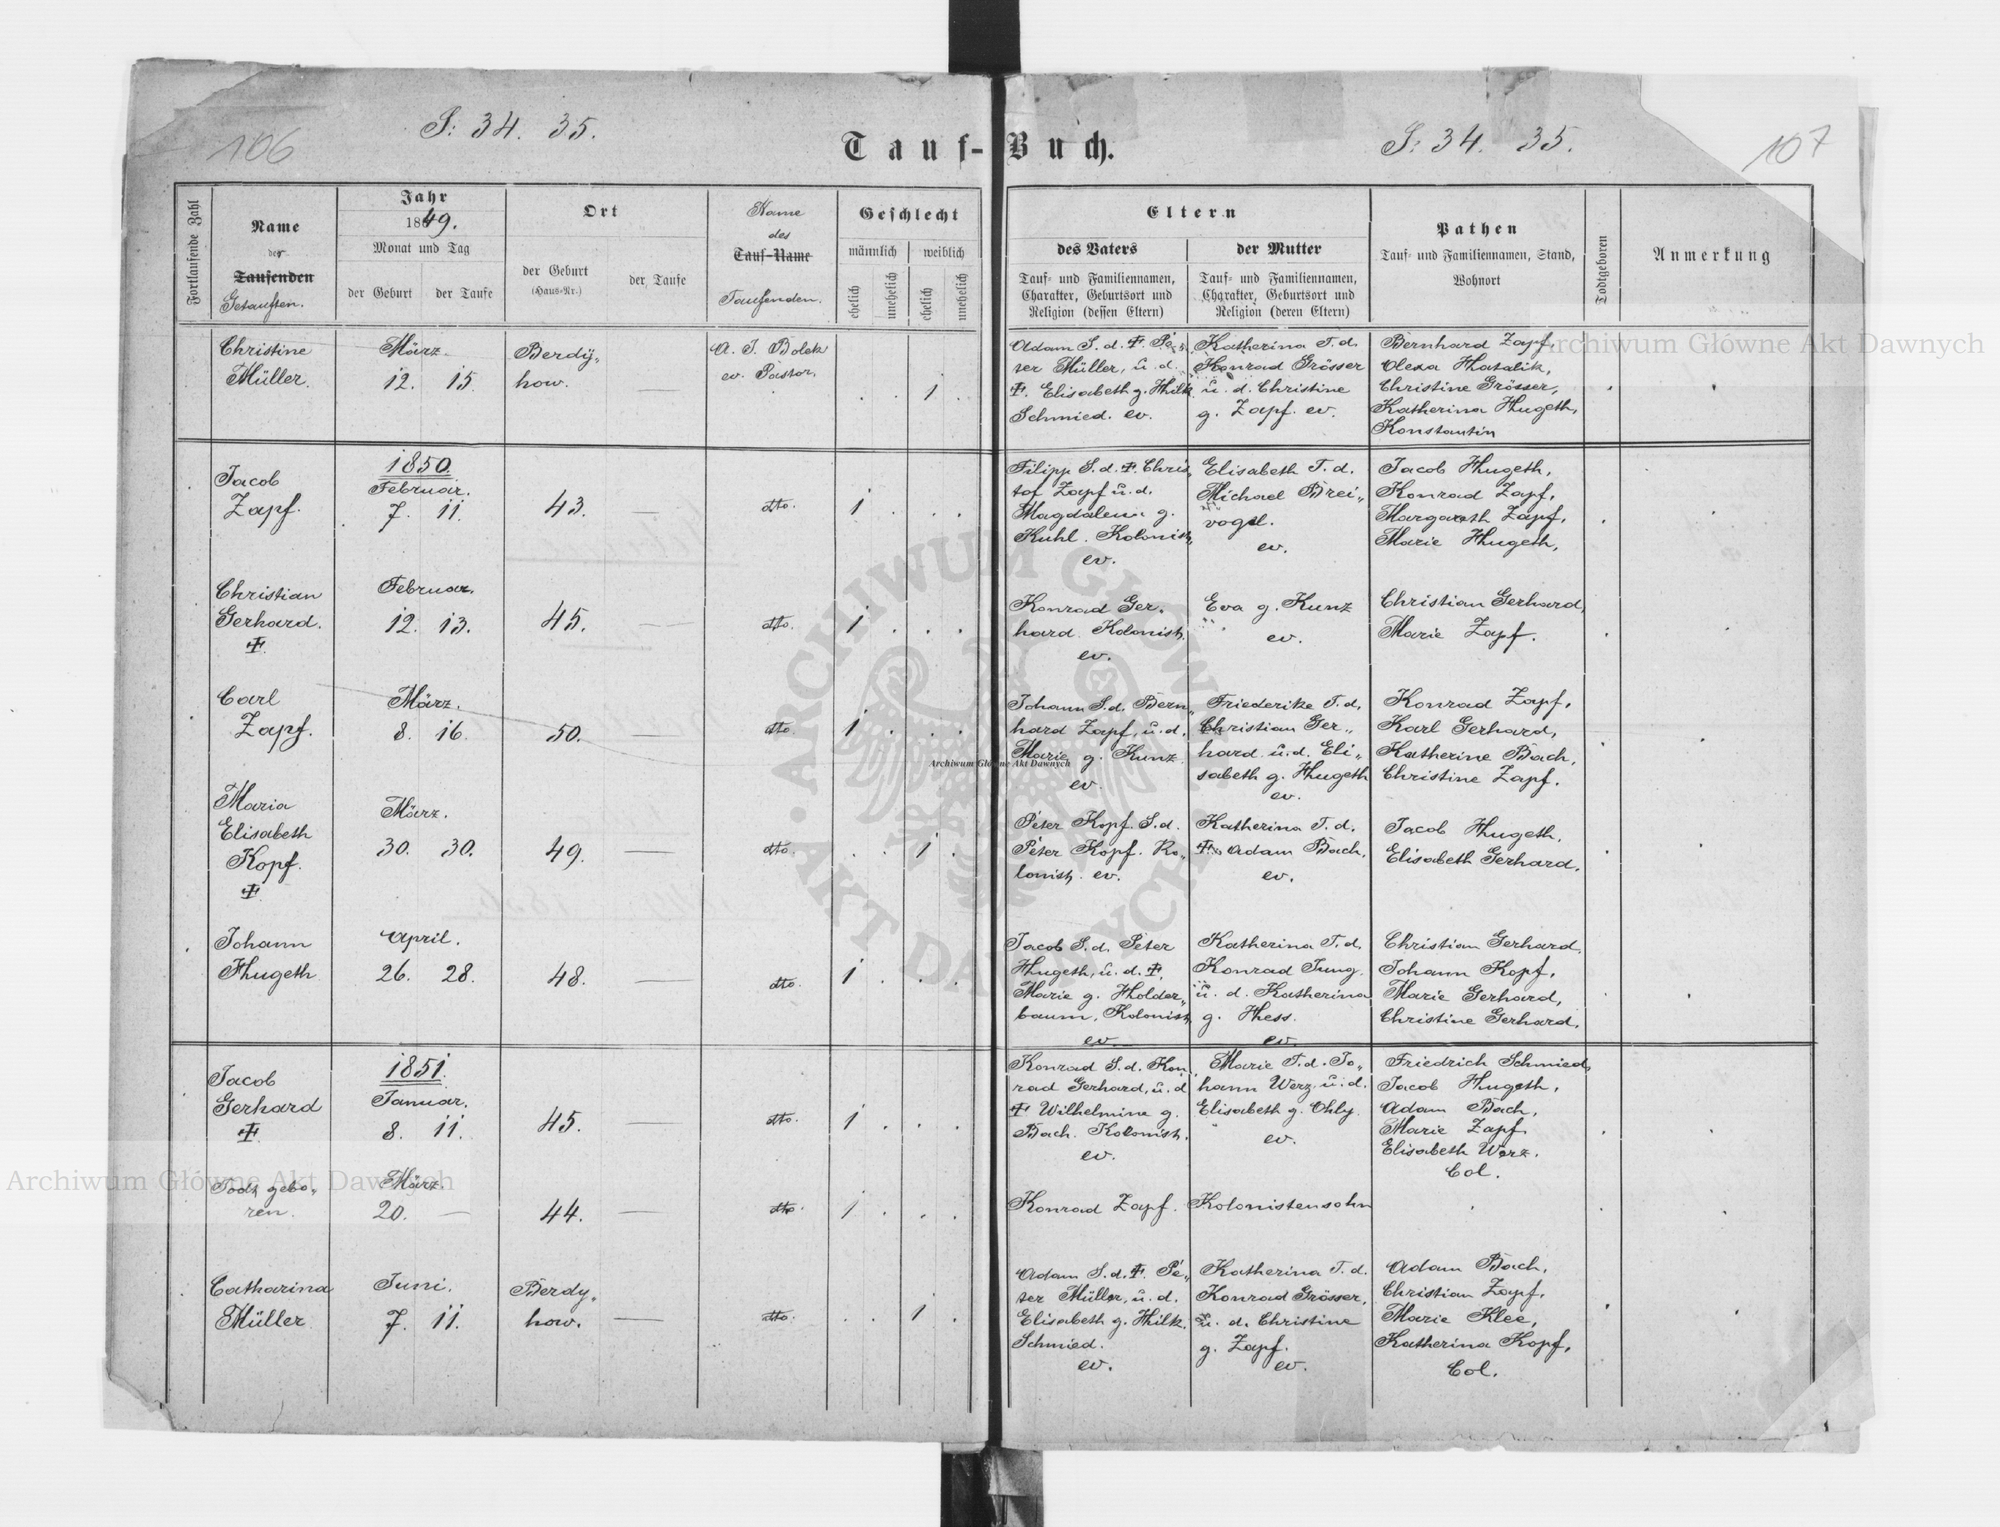 106
S: 34. 35.
Tauf-Buch.
S: 34. 35.
107
Fortlaufende Zahl
Name
der
Taufenden
Getauften.
Jahr
1849.
Monat und Tag
der Geburt
der Taufe
Ort
der Geburt
(Haus-Nr.)
der Taufe
Name
des
Tauf-Name
Taufenden.
Geschlecht
männlich
weiblich
ehelich
unehelich
ehelich
unehelich
Eltern
des Vaters
Tauf- und Familiennamen,
Charakter, Geburtsort und
Religion (dessen Eltern)
der Mutter
Tauf- und Familiennamen,
Charakter, Geburtsort und
Religion (deren Eltern)
Pathen
Tauf- und Familiennamen, Stand,
Wohnort
Todtgeboren
Anmerkung
Christine
Müller.
März
12. 15.
Berdy„
how.
—
A. J. Bolek
ev. Pastor.
1
Adam S. d. ✝. Pe„
ter Müller, u. d.
✝. Elisabeth g. Hilk
Schmied. ev.
Katherina T. d.
Konrad Grösser
u. d. Christine
g. Zapf. ev.
Bernhard Zapf,
Olexa Hatalik,
Christine Grösser,
Katherina Hugeth,
Konstantin
Jacob
Zapf.
1850.
Februar.
7. 11.
43.
—
dto.
1
Filipp S. d. ✝. Chris„
tof Zapf u. d.
Magdalena g.
Kuhl. Kolonist„
ev.
Elisabeth T. d.
Michael Brei„
vogel.
ev.
Jacob Hugeth,
Konrad Zapf,
Margareth Zapf,
Marie Hugeth,
Christian
Gerhard.
✝.
Februar.
12. 13.
45.
—
dto.
1
Konrad Ger.
hard. Kolonist.
ev.
Eva g. Kunz
ev.
Christian Gerhard,
Marie Zapf.
Carl
Zapf.
März.
8. 16.
50.
—
dto.
1
Johann S. d. Bern„
hard Zapf, u. d.
Marie g. Kunz.
ev.
Friederike T. d.
Christian Ger„
hard u. d. Eli„
sabeth g. Hugeth
ev.
Konrad Zapf,
Karl Gerhard,
Katherine Bach,
Christine Zapf.
Maria
Elisabeth
Kopf.
✝.
März.
30. 30.
49.
—
dto.
1
Peter Kopf. S. d.
Peter Kopf. Ko„
lonist. ev.
Katherina T. d.
✝. Adam Bach,
ev.
Jacob Hugeth,
Elisabeth Gerhard.
Johann
Hugeth
April.
26. 28.
48.
—
dto.
1
Jacob S. d. Peter
Hugeth, u. d. ✝.
Marie g. Holder„
baum, Kolonist,
ev.
Katherina T. d.
Konrad Jung.
u. d. Katherina
g. Hess.
ev.
Christian Gerhard,
Johann Kopf,
Marie Gerhard,
Christine Gerhard.
Jacob
Gerhard
✝.
1851.
Januar.
8. 11.
45.
—
dto.
1
Konrad S. d. Kon„
rad Gerhard, u. d
✝ Wilhelmine g.
Bach. Kolonist.
ev.
Marie T. d. Jo„
hann Werz, u. d.
Elisabeth g. Ohly.
ev.
Friedrich Schmied,
Jacob Hugeth,
Adam Bach,
Marie Zapf
Elisabeth Werz.
Col.
Todt gebo„
ren.
März.
20. —
44.
—
dto.
1
Konrad Zapf. Kolonistensohn
Catharina
Müller
Juni.
7. 11.
Berdy„
how.
—
dto.
1
Adam S. d. ✝. Pe„
ter Müller, u. d.
Elisabeth g. Hilk.
Schmied.
ev.
Katherina T. d.
Konrad Grösser,
u. d. Christine
g. Zapf.
ev.
Adam Bach,
Christian Zapf,
Marie Klee,
Katherina Kopf,
Col.
Archiwum Główne Akt Dawnych
Archiwum Główne Akt Dawnych
Archiwum Główne Akt Dawnych
ARCHIWUM GŁÓWNE AKT DAWNYCH